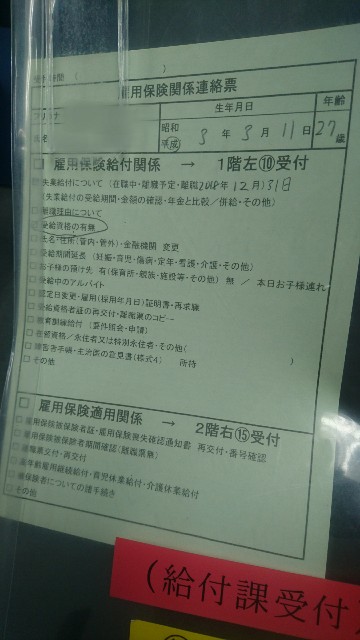 雇用保険関係連絡票
フリガナ
氏名
生年月日
年齢
昭和
平成
3 年 3 月 11 日
27 歳
□ 雇用保険給付関係 → 1階左⑩受付
失業給付について (在職中・離職予定・離職2018年12月31日
(失業給付の受給期間・金額の確認・年金と比較/併給・その他)
離職理由について
受給資格の有無
氏名・住所(管内・管外)・金融機関 変更
受給期間延長 (妊娠・育児・傷病・定年・看護・介護・その他)
お子様の預け先 有(保育所・親族・施設等・その他) 無 / 本日お子様連れ
受給中のアルバイト
認定日変更・雇用(採用年月日)証明書・再求職
受給資格者証の再交付・離職票のコピー
教育訓練給付 (要件照会・申請)
在留資格/永住者又は特別永住者・その他(
障害者手帳・主治医の意見書(様式4) 所持
□ その他 )
□ 雇用保険適用関係 → 2階右⑮受付
□ 雇用保険被保険者証・雇用保険喪失確認通知書 再交付・番号確認
□ 雇用保険被保険者期間確認(離職票無)
□ 離職票交付・再交付
□ 高年齢雇用継続給付・育児休業給付・介護休業給付
□ 被保険者についての諸手続き
その他
(給付課受付